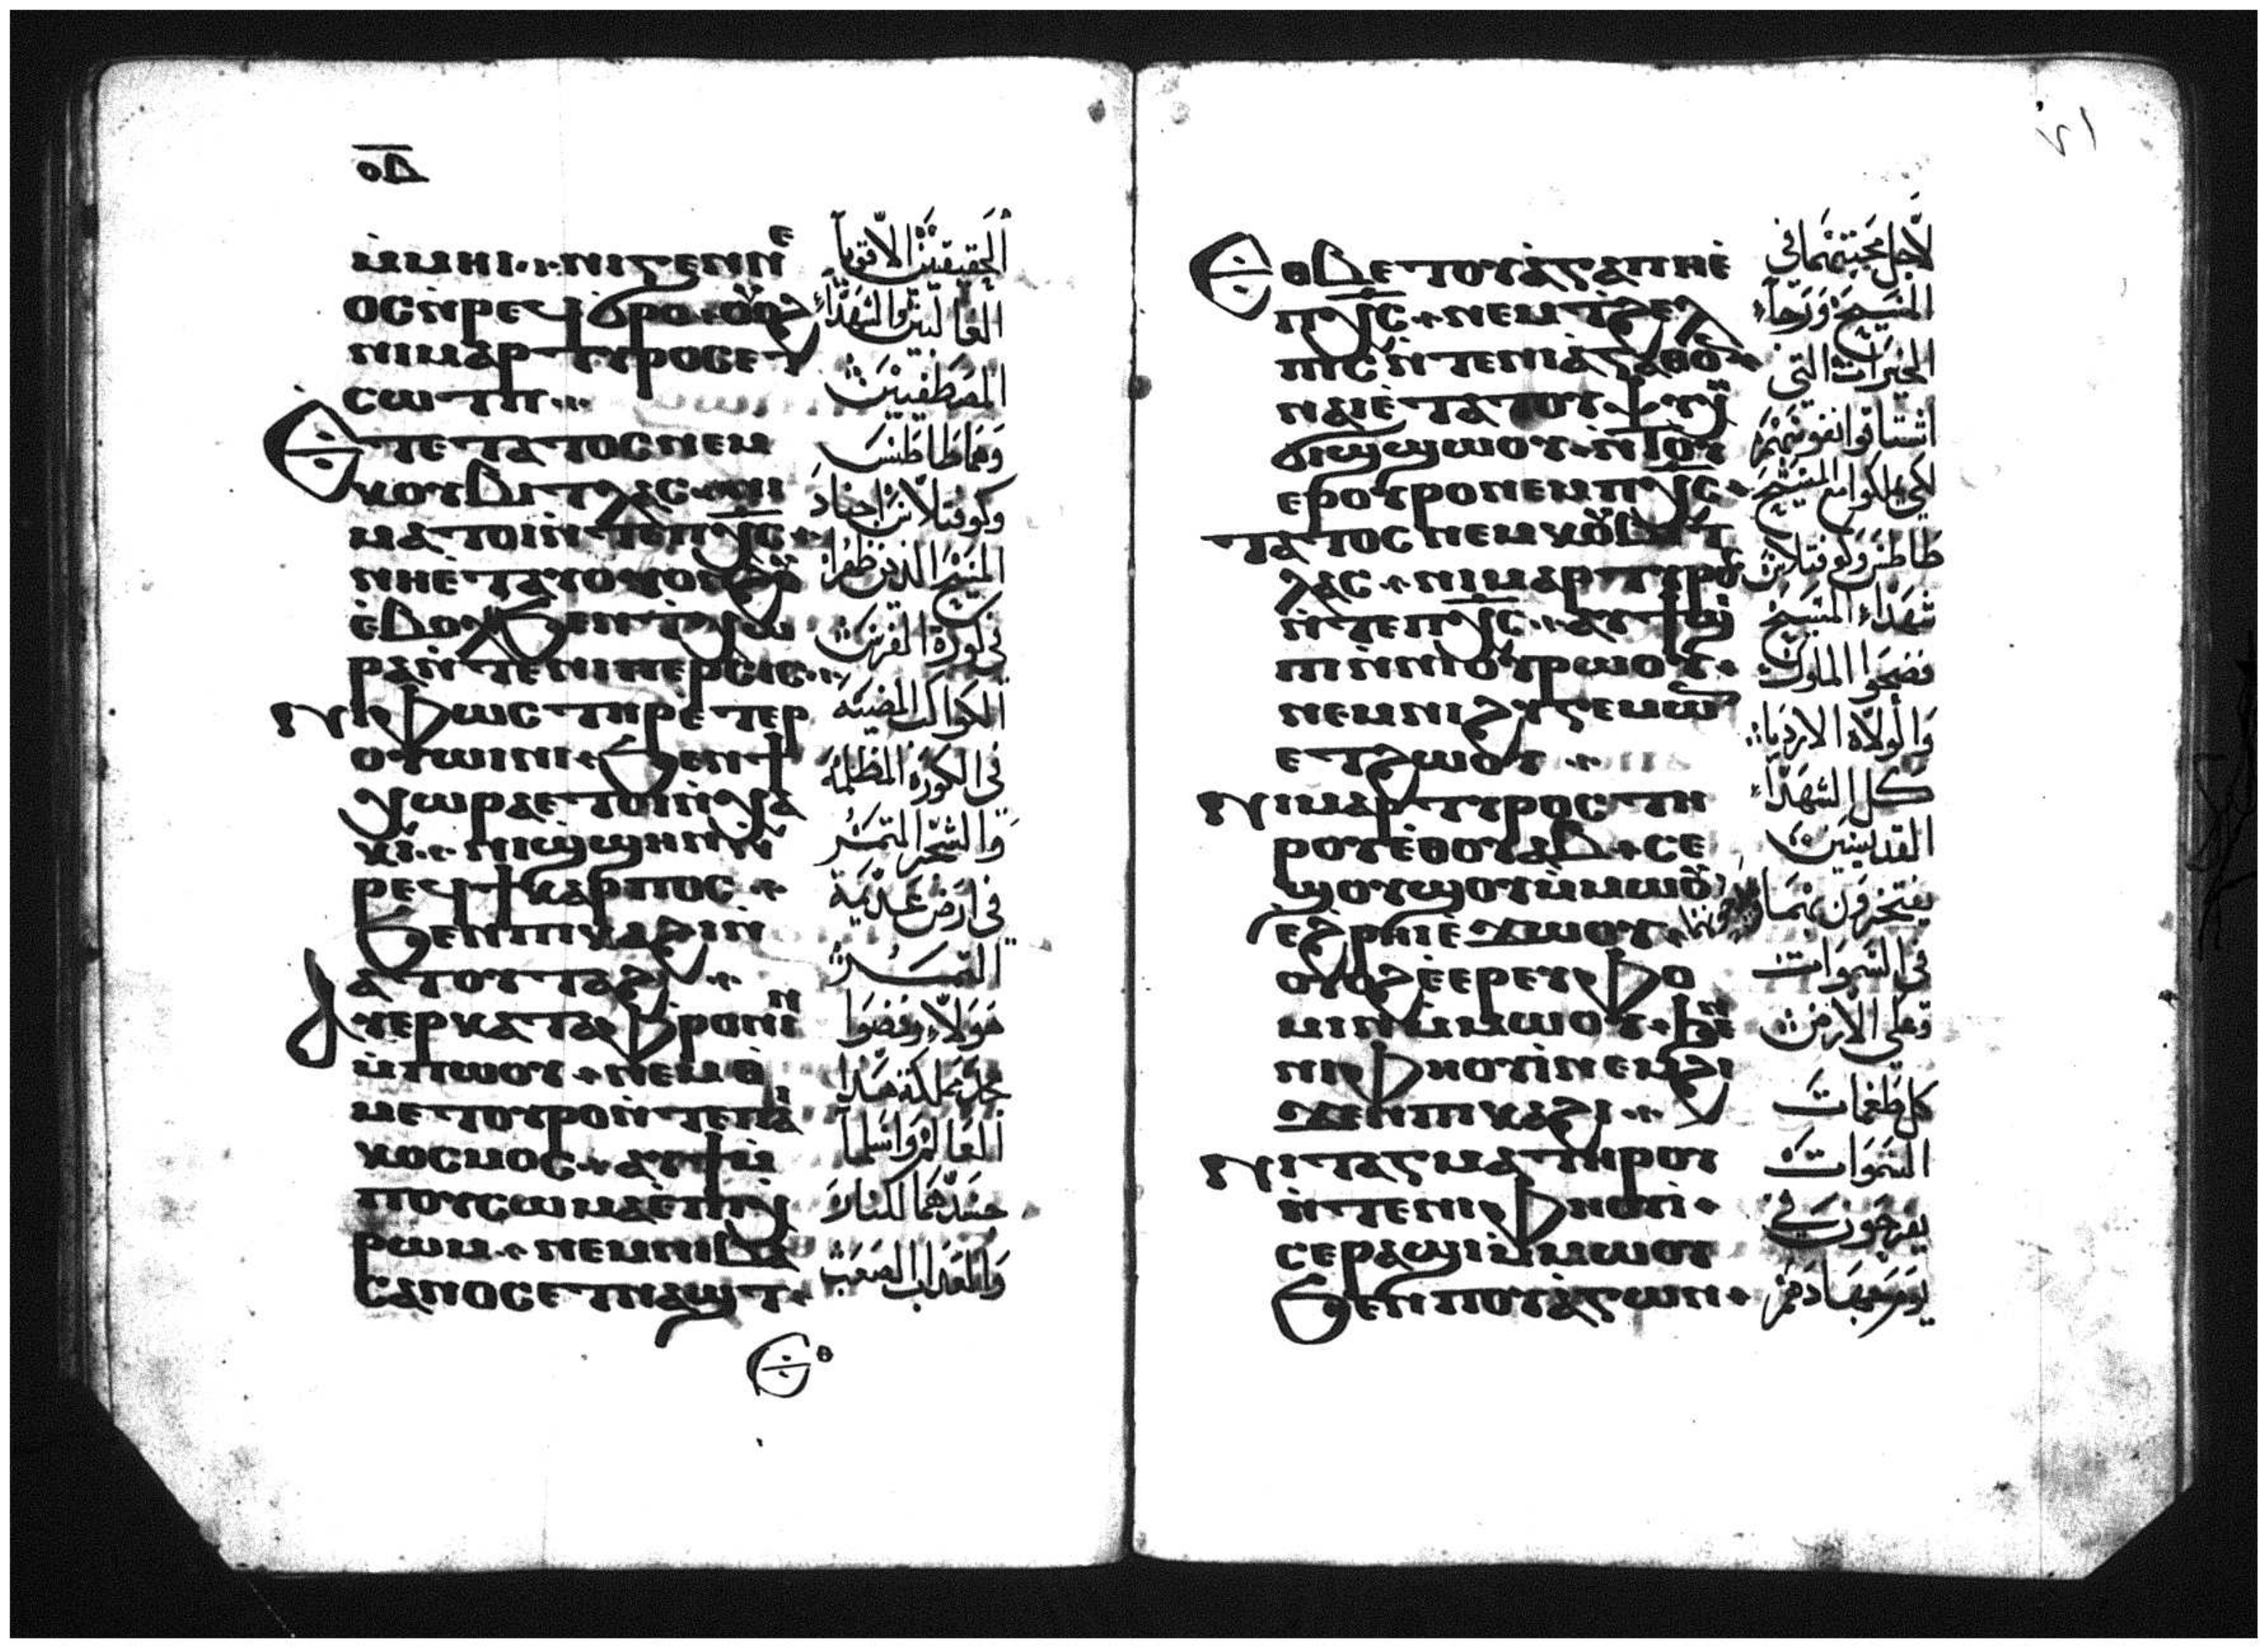 ⲟⲇ
ⲙ̀ⲙⲏⲓ ⲛⲓⲅⲉⲛⲛⲉ
ⲟⲥ ⲛ̀ⲣⲉϥϭⲣⲟ ⲟⲩⲟϩ
ⲛⲓⲙⲁⲣⲧⲩⲣⲟⲥ ⲉⲧ
ⲥⲱⲧⲡ
Ⲉⲧⲉ ⲧⲁⲧⲟⲥ ⲛⲉⲙ
ⲕⲟⲩⲃⲓⲧⲗⲁⲥ ⲛⲓ
ⲙⲁⲧⲟⲓ ⲛ̀ⲧⲉ ⲡⲭ̅ⲥ̅
ⲛⲏⲉ̀ⲧⲁⲩⲟⲩⲟⲛϩⲟⲩ
ⲉ̀ⲃⲟⲗ ϧⲉⲛ ϯⲭⲱ
ⲣⲁ ⲛ̀ⲧⲉ ⲛⲓⲡⲉⲣⲥⲓⲥ
Ⲛⲓⲫⲱⲥⲧⲏⲣ ⲉ̀ⲧⲉⲣ
ⲟⲩⲱⲓⲛⲓ ϧⲉⲛ ϯ
ⲭⲱⲣⲁ ⲉⲧⲟⲓ ⲛ̀ⲭⲁ
ⲕⲓ ⲛⲓϣϣⲏⲛ ⲛ̀
ⲣⲉϥϯⲕⲁⲣⲡⲟⲥ
ϧⲉⲛ ⲡⲓⲕⲁϩⲓ ⲛ̀
ⲁⲧⲟⲩⲧⲁϩ
Ⲁⲩⲉⲣⲕⲁⲧⲁⲫⲣⲟⲛⲓⲛ
ⲙ̀ⲡⲱⲟⲩ ⲛⲉⲙ ⲑ
ⲙⲉⲧⲟⲩⲣⲟ ⲛ̀ⲧⲉ ⲡⲁⲓ
ⲕⲟⲥⲙⲟⲥ ⲁⲩϯ ⲙ̀
ⲡⲟⲩⲥⲱⲙⲁ ⲉ̀ⲡⲓⲭ
ⲣⲱⲙ ⲛⲉⲙ ⲛⲓⲃⲁ
ⲥⲁⲛⲟⲥ ⲉⲧⲛⲁϣⲧ
Ⲉⲑ
الحقيقيين الاقويا
الغالبين والشهداء
المصطفيين
وهما طاطس
وكوفتلاس اجناد
المسيح الذين ظهرا
في كورة الفرس
الكواكب المضيئة
في الكورة المظلمة
والشجر المتمر
في ارض عديمة
الثمر
هولاء رفضوا
مجد مملكة هذا
العالم واسلما
جسدهما للنار
والعذاب الصعب
Ⲉⲑⲃⲉ ⲧⲟⲩⲁ̀ⲅⲁⲡⲏ ⲉ̀
ⲡⲭ̅ⲥ̅ ⲛⲉⲙ ϯϩⲉⲗ
ⲡⲓⲥ ⲛ̀ⲧⲉ ⲛⲓⲁ̀ⲅⲁⲑⲟⲛ
ⲛⲁⲓ ⲉ̀ⲧⲁ ⲧⲟⲩⲯⲩⲭⲏ
ϭⲓϣϣⲱⲟⲩ ⲛ̀ⲧⲟⲩ
ⲉⲣⲟⲩⲣⲟ ⲛⲉⲙ ⲡⲭ̅ⲥ̅
ⲧⲁⲧⲟⲥ ⲛⲉⲙ ⲕⲟⲩⲃⲓⲧ
ⲗⲁⲥ ⲛⲓⲙⲁⲣⲧⲩⲣⲟⲥ
ⲛ̀ⲧⲉ ⲡⲭ̅ⲥ̅ ⲁⲩϯϣⲓ
ⲡⲓ ⲛ̀ⲛⲓⲟⲩⲣⲱⲟⲩ
ⲛⲉⲙ ⲛⲓϩⲩⲅⲉⲙⲱⲛ
ⲉⲧϩⲱⲟⲩ
Ⲛⲓⲙⲁⲣⲧⲩⲣⲟⲥ ⲧⲏ
ⲣⲟⲩ ⲉ̀ⲑⲟⲩⲁⲃ ⲥⲉ
ϣⲟⲩϣⲟⲩ ⲙ̀ⲙⲱⲟⲩ
ⲉ̀ϩⲣⲏⲓ ⲉ̀ϫⲱⲟⲩ
ⲟⲩⲟϩ ⲉ̀ⲉⲣⲉⲩⲫⲟ
ⲙⲓⲛ ⲙ̀ⲙⲱⲟⲩ ϧⲉⲛ
ⲛⲓⲫⲏⲟⲩⲓ̀ ⲛⲉⲙ ϩⲓ
ϫⲉⲛ ⲡⲓⲕⲁϩⲓ
Ⲛⲓⲧⲁⲅⲙⲁ ⲧⲏⲣⲟⲩ
ⲛ̀ⲧⲉ ⲛⲓⲫⲏⲟⲩⲓ̀
ⲥⲉⲣⲁϣⲓ ⲙ̀ⲙⲱⲟⲩ
ϧⲉⲛ ⲡⲟⲩⲁ̀ⲅⲱⲛ
لاجل محبتهما في
المسيح ورجاء
الخيرات التي
اشتاقوا نفوسهم
لكي يملكوا مع المسيح
طاطس وكوفتلاس
شهداء المسيح
فضحوا الملوك
والولاة الاردياء
كل الشهداء
القديسين
يفتخرون بهما
في السموات
وعلى الارض
كل طغمات
السموات
يفرحون في
يوم جهادهم